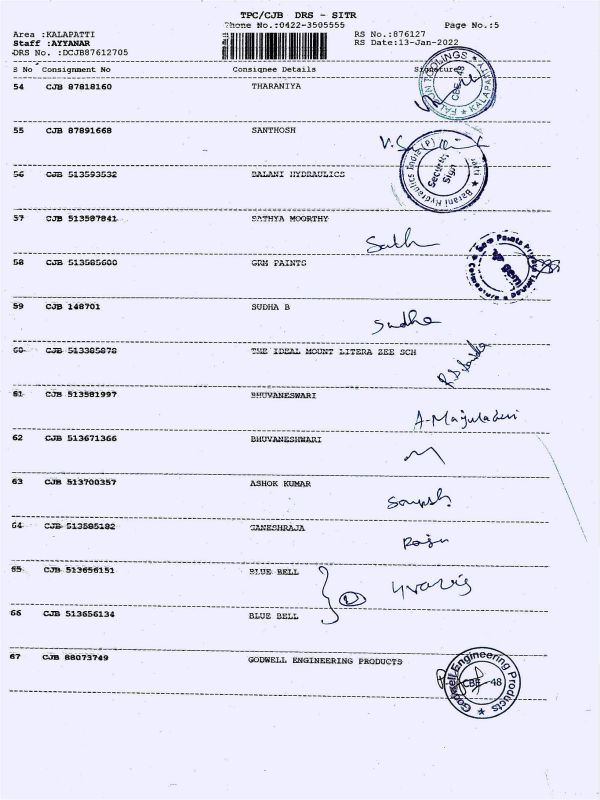 TPC/CJB DRS - SITR
Phone No.:0422-3505555 Page No.:5
Area :KALAPATTI RS No.:876127
Staff :AYYANAR RS Date:13-Jan-2022
DRS No. :DCJB87612705
S No Consignment No Consignee Details Signature
54 CJB 87818160 THARANIYA
TOOLINGS
CBE - 48
★ KALAPATTI
55 CJB 87891668 SANTHOSH
56 CJB 513593532 BALANI HYDRAULICS
Barani Hydraulics India (P)
Security
Sign
57 CJB 513587841 SATHYA MOORTHY
58 CJB 513585600 GRM PAINTS
59 CJB 148701 SUDHA B
Sudha
60 CJB 513385878 THE IDEAL MOUNT LITERA ZEE SCH
61 CJB 513581997 BHUVANESWARI
62 CJB 513671366 BHUVANESHWARI
63 CJB 513700357 ASHOK KUMAR
64 CJB 513585182 GANESHRAJA
Raju
65 CJB 513656151 BLUE BELL
66 CJB 513656134 BLUE BELL
67 CJB 88073749 GODWELL ENGINEERING PRODUCTS
Godwell Engineering Products
CBE - 48
★